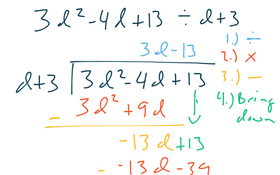 3d²-4d+13 ÷ d+3
3d-13
d+3 3d²-4d+13
- 3d²+9d
-13d+13
- -13d-39
1.) ÷
2.) ×
3.) —
4.) Bring
down